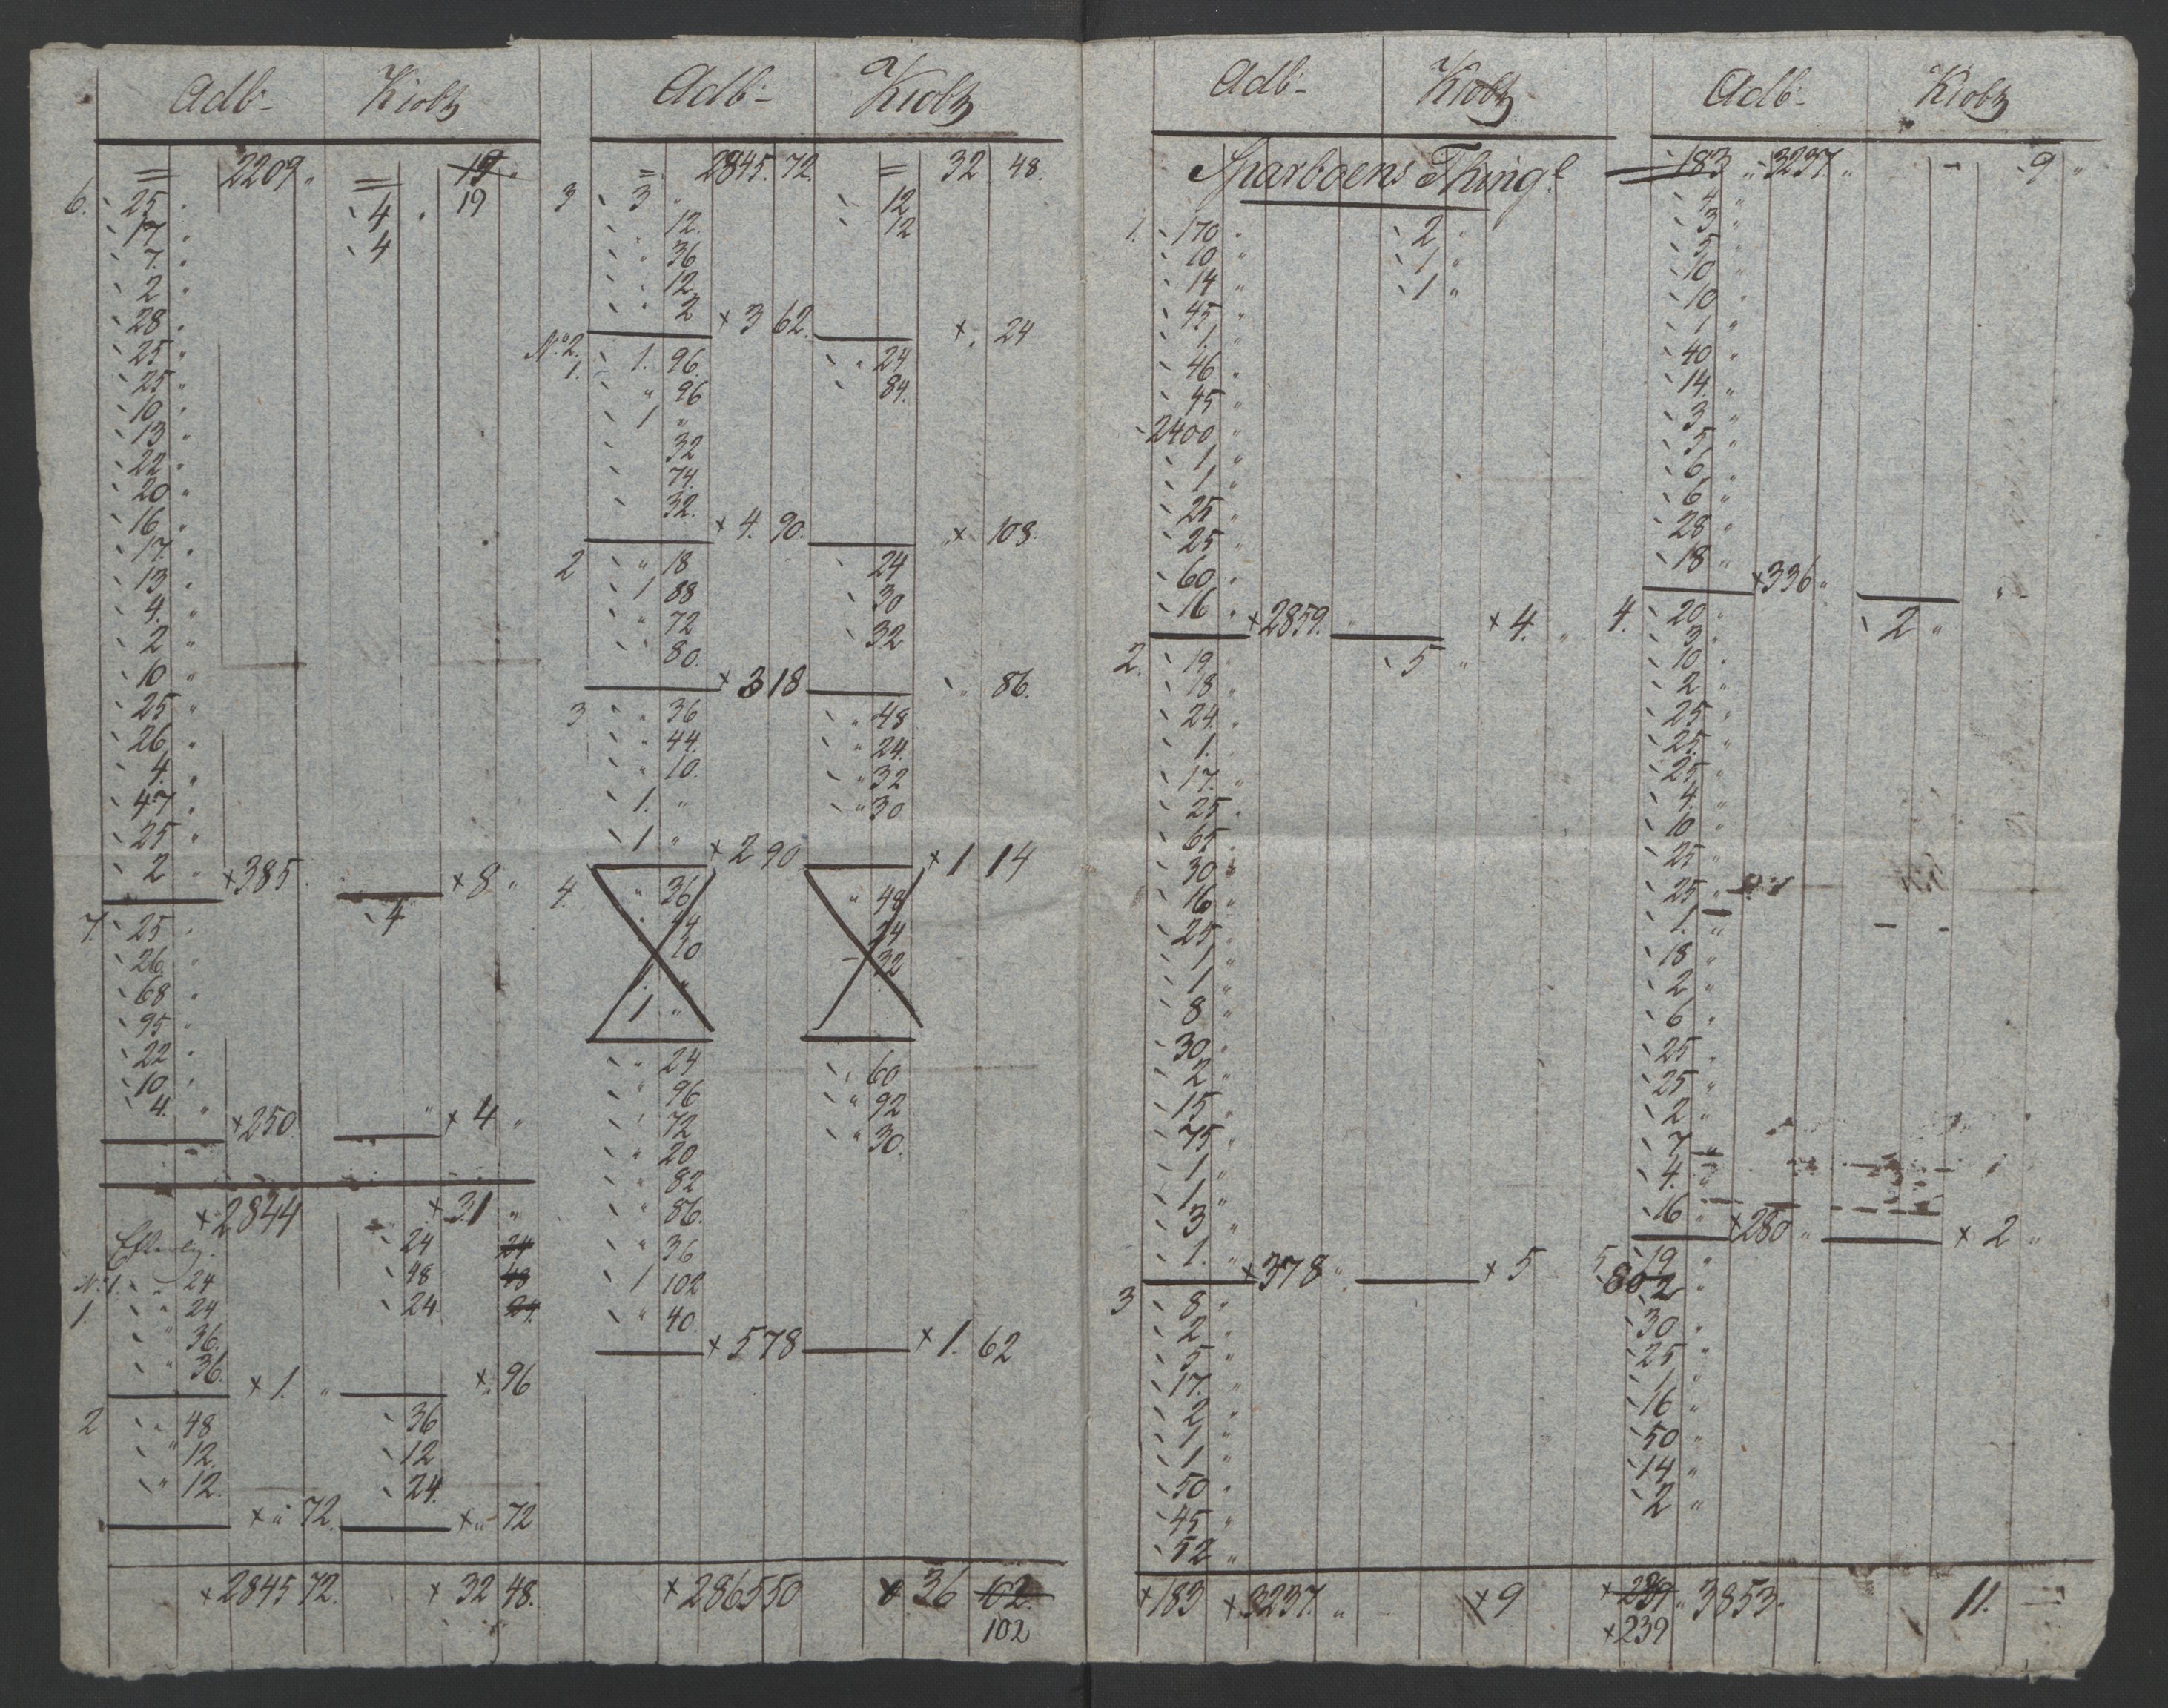 Adb- Kiobz
= 2209 " = 19 "
6. 25 " 4 " 19
17 " 4
7. "
2 "
28 "
25 "
25 "
10 "
13 "
22 "
20 "
16 "
17 "
13 "
4. "
2 "
10 "
25 "
26 "
4. "
47 "
25 "
2 " × 385. × 8 "
7. 25 " 4
26 "
68 "
95 "
22 "
10 "
4. " × 250 " × 4 "
× 2844 × 31 "
24 24
No 1. " 24 48 48
1. " 24 24 24
" 36.
" 36. × 1. " × " 96
2 " 48 36
" 12. 12
" 12. 24.
× " 72. × " 72
× 2845 72. × 32 48.
Adb- Kiobz
= 2845. 72. = 32 48.
3 3 " 12
" 12. 12
" 36
" 12.
" 2 × 3 62. × " 24
No 2.
1. 1. 96. " 24
" 96 84.
1 "
32
74.
32. × 4. 90. × 108.
2 " 18 24
1 88 30
" 72 32
" 80. × 3 18 " 86.
3 " 36 " 48
" 44. " 24.
" 10. " 32
1. " " 30
1 " × 2 90 × 1 14
4. " 36 " 48
44 24
10 32
1. "
1 "
" 24 " 60
" 96 " 92
" 72 " 30.
" 20
" 82
" 86.
" 36
1 102
" 40. × 5 78 × 1. 62
× 2865 50 × 36 102.
102
Adb- Kiobz
Sparboens Thingl
1. 170 " 2 "
10 " 1 "
14 " 1 "
45 "
1. "
46 "
45 "
2400 "
1 "
1 "
25 "
25 "
60 "
16 " × 2859. " × 4. "
2. 19 " 5 "
18 "
24. "
1. "
17. "
25 "
65 "
30 "
16 "
25 "
1 "
1 "
8 "
30 "
2 "
15 "
75 "
1 "
1 "
3 "
1. " × 378 " × 5
3 8 "
2 "
5 "
17. "
2 "
1 "
1 "
50 "
45 "
52 "
× 183 × 3237. " × 9
Adb- Kiobz
183 " 3237 " - 9 "
4 "
3 "
5 "
10 "
10 "
1 "
40 "
14. "
3 "
5 "
6 "
6 "
28 "
18 " × 336 " "
4. 20 " 2 "
3 "
10 "
2 "
25 "
25 "
25 "
4. "
10 "
25 "
25 "
1. "
18 "
2 "
6 "
25 "
25 "
2 "
7 "
4. "
16 " × 280 " × 2 "
5 19 "
80 2 "
30 "
25 "
1 "
16 "
50 "
14 "
2 "
× 239 " 3853 " 11.
× 239